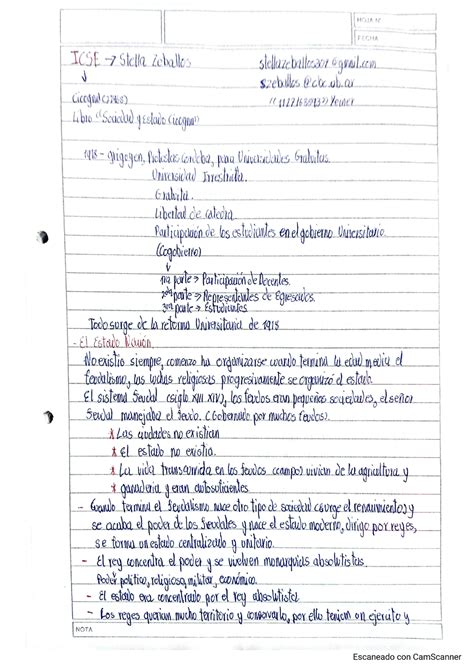 HOJA N°
FECHA
ICSE → Stella Zeballos stellazeballos201@gmail.com
szeballos@cbc.uba.ar
Cicogna
Libro "Sociedad y Estado (Cicogna)
1918 - Yrigoyen, Protestas Cordoba, para Universidades Gratuitas.
Universidad Irrestricta.
Gratuita.
Libertad de catedra.
Participación de los estudiantes en el gobierno Universitario.
(Cogobierno)
1ra parte → Participación de Docentes.
2da parte → Representantes de Egresados.
3ra parte → Estudiantes
Todo surge de la reforma Universitaria de 1918
- El Estado Nación.
No existio siempre, comenzo ha organizarse cuando termina la edad media el
feudalismo, las luchas religiosas progresivamente se organizó el estado.
El sistema feudal (siglo XIII XIV), los feudos eran pequeñas sociedades, el señor
feudal manejaba el feudo. (Gobernado por muchos feudos).
* Las ciudades no existian
* El estado no existia.
* La vida transcurrida en los feudos (campo) vivian de la agricultura y
* ganaderia y eran autosuficientes
- Cuando termina el feudalismo nace otro tipo de sociedad (surge el renacimiento) y
se acaba el poder de los feudales y nace el estado moderno, dirigo por reyes,
se forma un estado centralizado y unitario.
- El rey concentra el poder y se vuelven monarquias absolutistas.
Poder politico, religioso, militar, económico.
- El estado era concentrado por el rey absolutista
- Los reyes querian mucho territorio y conservarlo, por ello tenian un ejercito y
NOTA
Escaneado con CamScanner